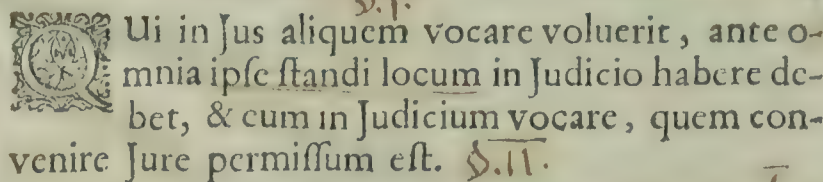 §.I.
QUi in Jus aliquem vocare voluerit, ante o-
mnia ipſe ſtandi locum in Judicio habere de-
bet, & cum in Judicium vocare, quem con-
venire Jure permiſſum eſt. §.II.